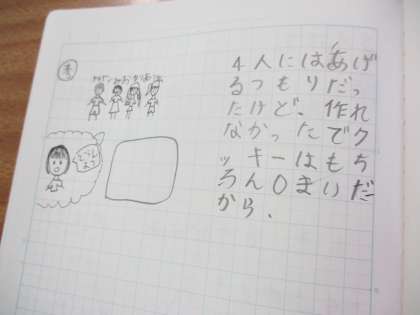 考
みお
4人にはあげ
るつもりだっ
たけど、作れ
なかったでク
ッキーはもち
ろん0まいだ
から、